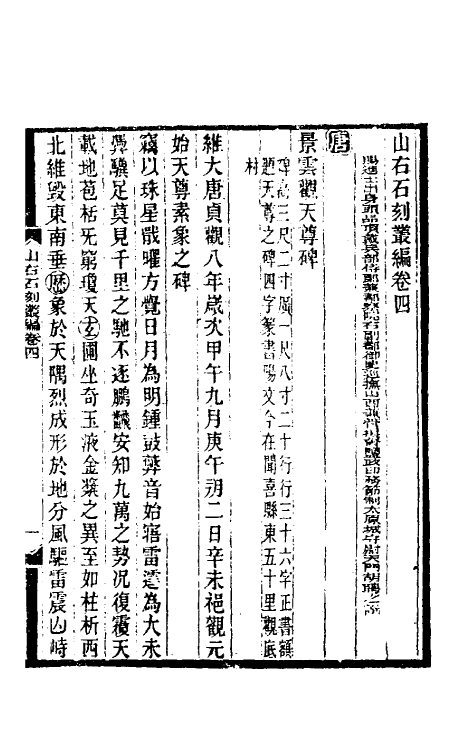 山右石刻叢編卷四
賜進士出身頭品頂戴兵部侍郎兼都察院右副都御史巡撫山西兼管提督鹽政印務節制太原城守尉天門胡聘之
唐
景雲觀天尊碑
碑高三尺二寸廣一尺八寸二十行行三十六字正書額
題天尊之碑四字篆書陽文今在聞喜縣東五十里觀底
村
維大唐貞觀八年歲次甲午九月庚午朔二日辛未祀觀元
始天尊素象之碑
竊以珠星戢曜方覺日月為明鍾鼓韜音始寤雷霆為大未
騁驥足莫見千里之馳不逐鵬飜安知九萬之勢況復覆天
載地苞栝旡窮瓊天玄圃坐奇玉液金漿之異至如柱析西
北維毀東南垂歷象於天隅烈成形於地分風驅雷震凶峙
山右石刻叢編卷四
一